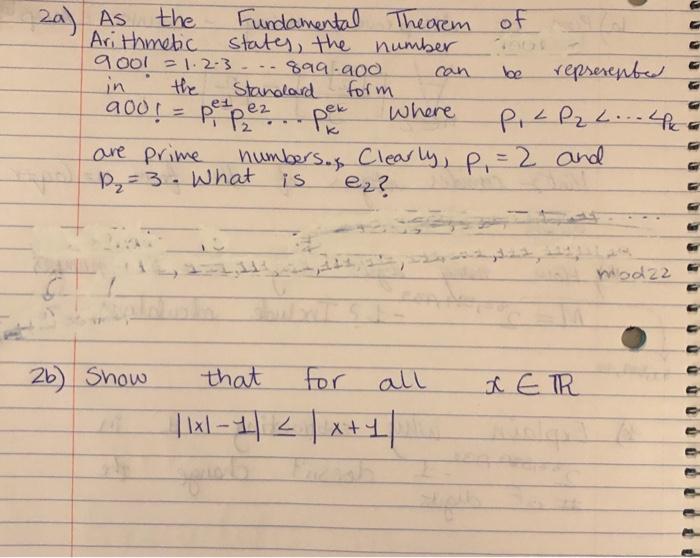 2a) As the Fundamental Theorem of
Arithmetic states, the number
900! = 1·2·3 ··· 899·900 can be represented
in the standard form
900! = p₁^e1 p₂^e2 ... pₖ^ek where p₁ < p₂ < ... < pₖ
are prime numbers. Clearly, p₁ = 2 and
p₂ = 3. What is e₂?
2b) Show that for all x ∈ ℝ
||x|-1| ≤ |x+1|